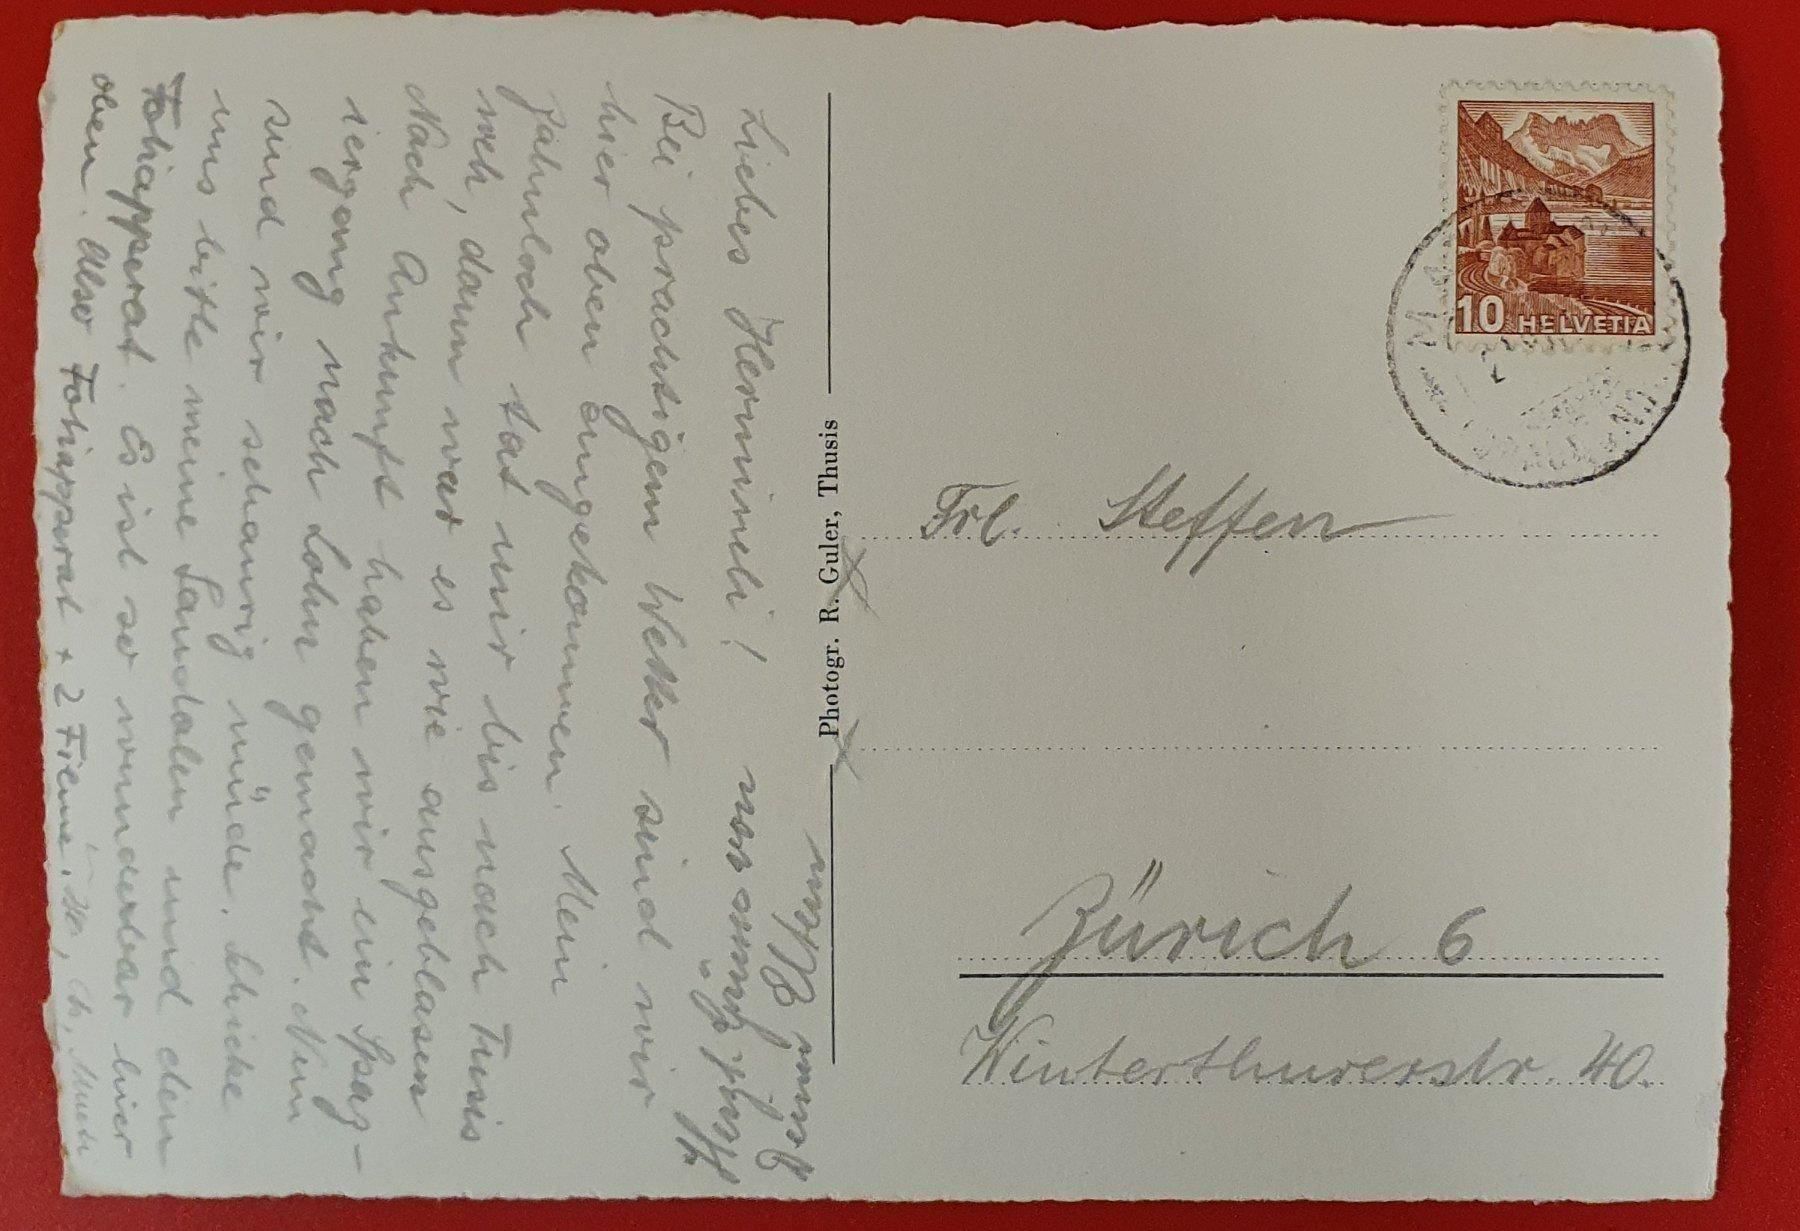 Liebes Hermineli!
Bei prächtigem Wetter sind wir
hier oben angekommen. Mein
Zahnloch tat mir bis nach Tusis
weh, dann war es wie ausgeblasen
Nach Ankunft haben wir ein Spaz-
iergang nach Lohn gemacht. Nun
sind wir schaurig müde. Schicke
uns bitte meine Sandalen und den
Fotiapperat. Es ist so wunderbar hier
oben. Also Fotiapperat + 2 Filme.
Photogr. R. Guler, Thusis
10 HELVETIA
Frl. Steffen
Zürich 6
Winterthurerstr. 40.